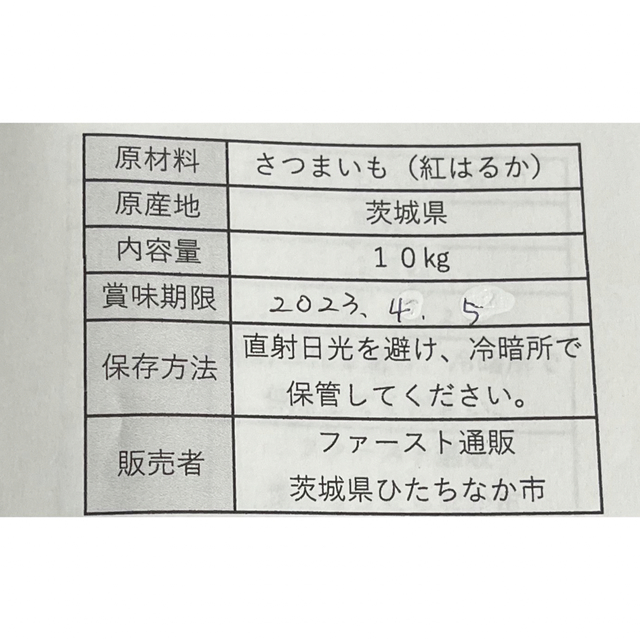 原材料 さつまいも（紅はるか）
原産地 茨城県
内容量 １０㎏
賞味期限 2023、4. 5
保存方法 直射日光を避け、冷暗所で
保管してください。
販売者 ファースト通販
茨城県ひたちなか市